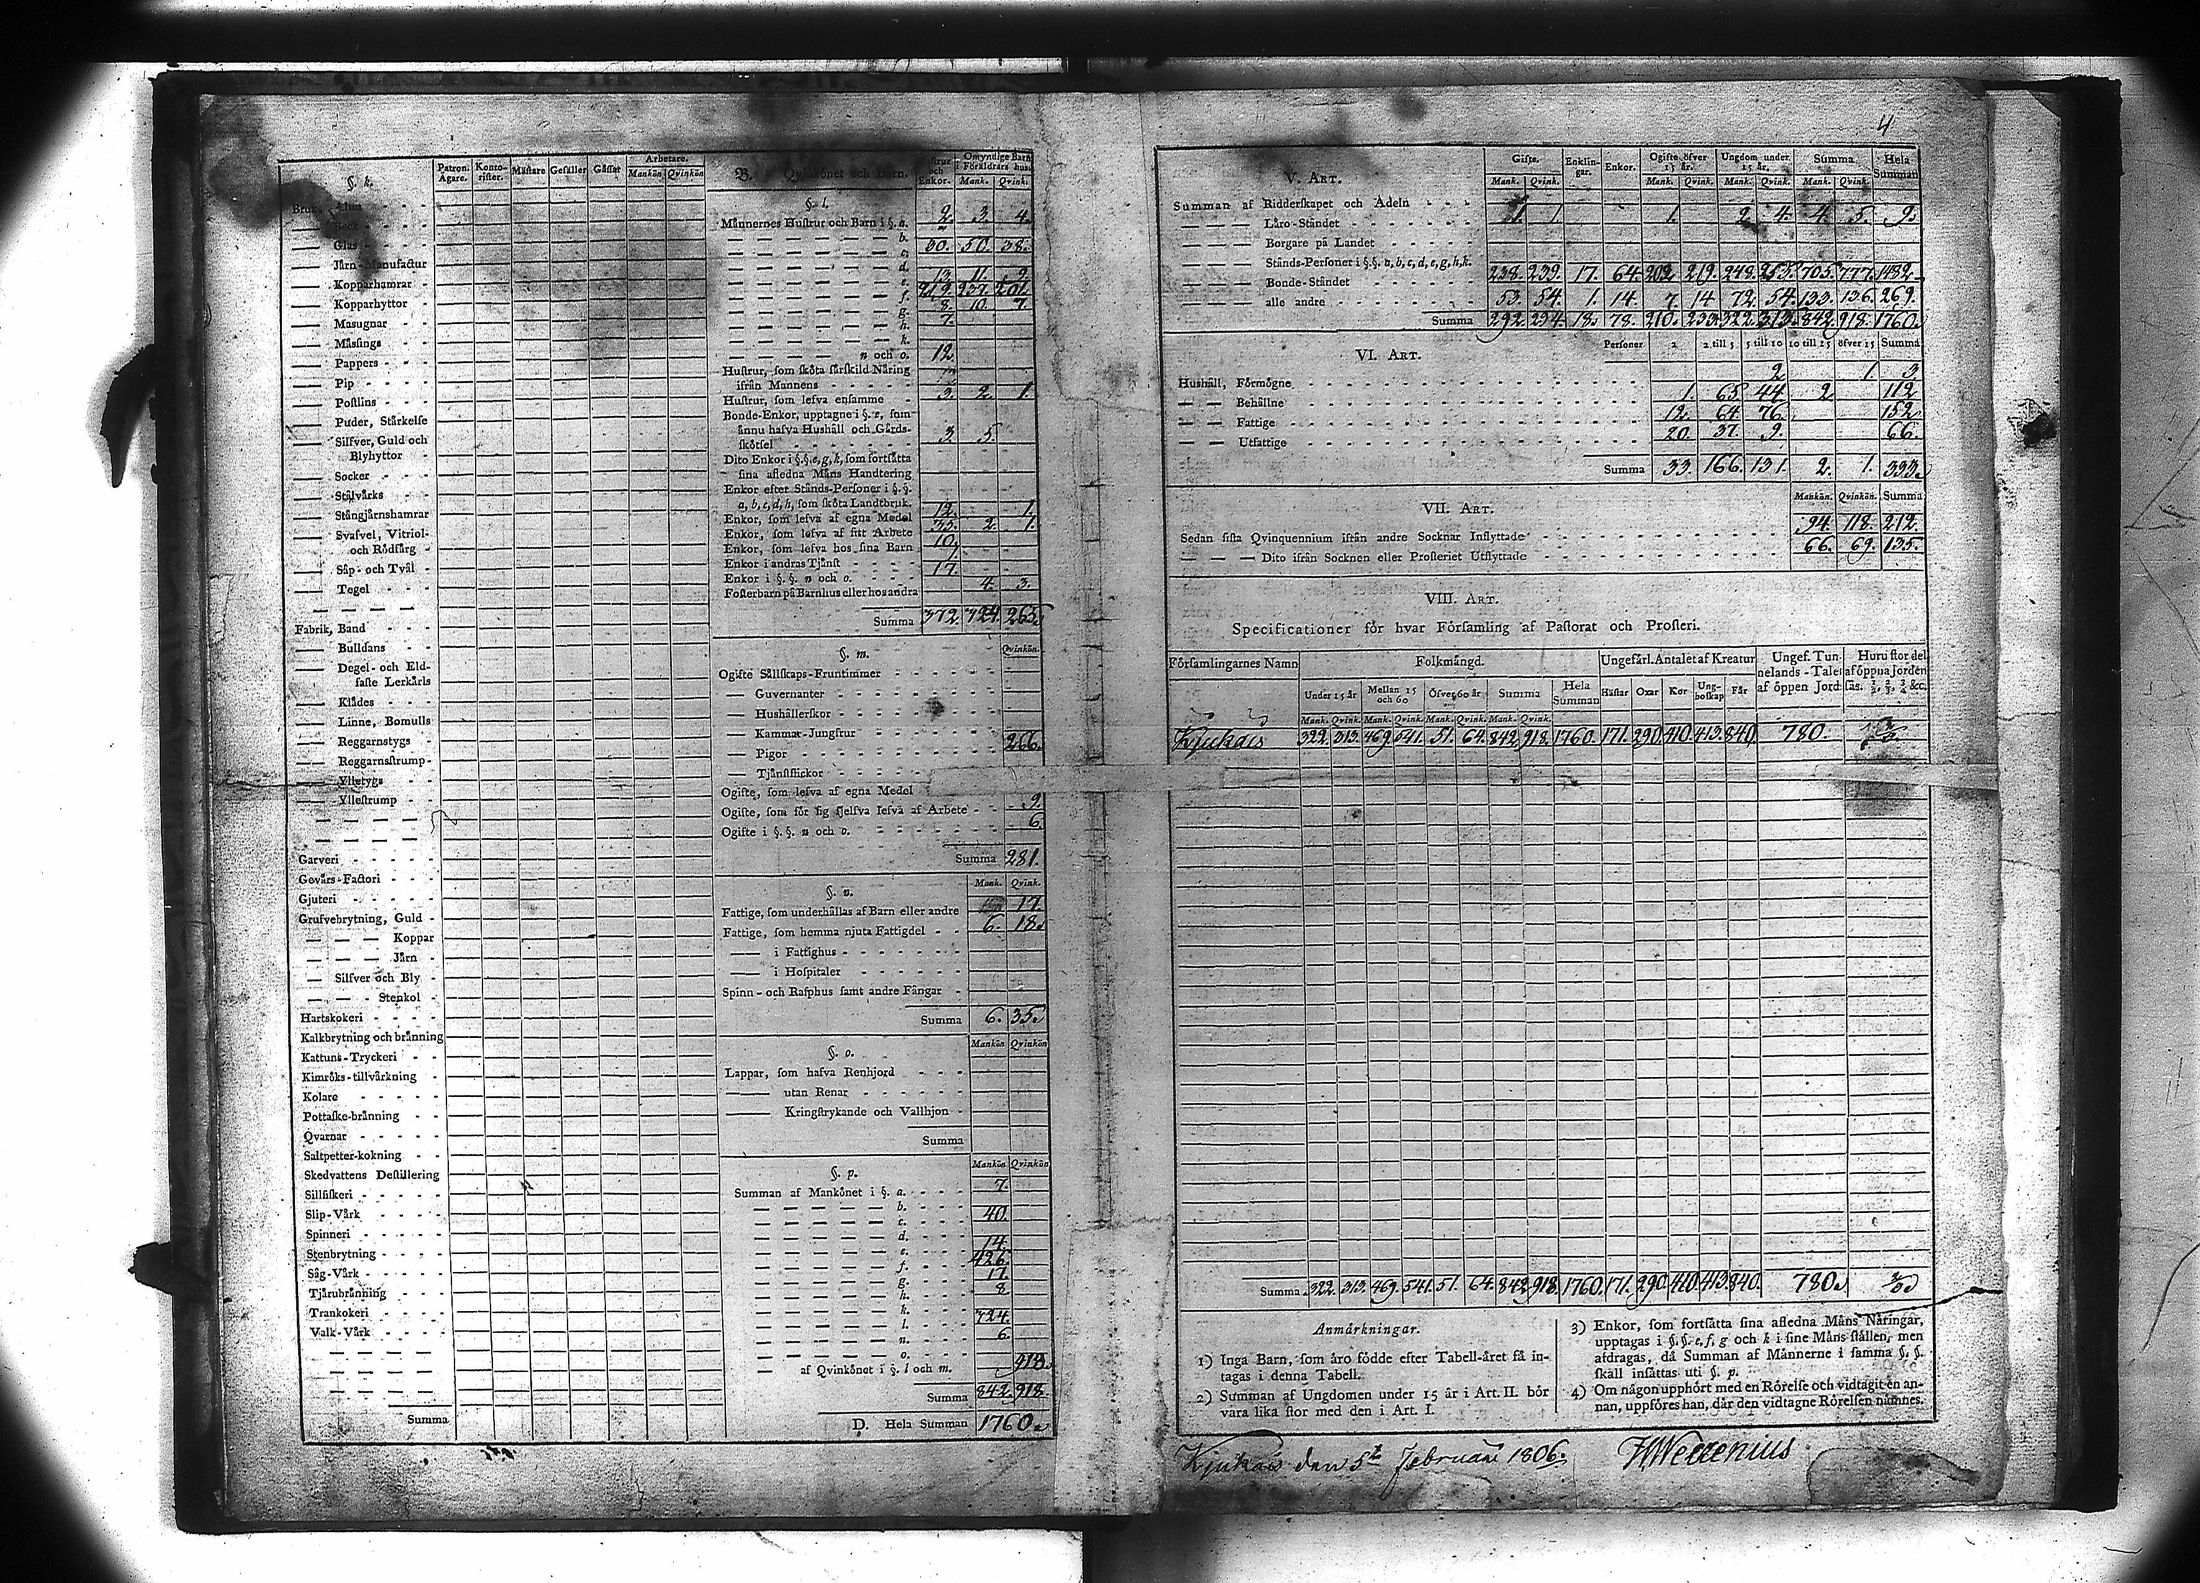 4
§. k.
Patron. Ägare.
Konto-rister.
Mästare
Gesäller
Gåssar
Arbetare.
Mankön
Qvinkön
Glas
Järn-Manufactur
Kopparhamrar
Kopparhyttor
Masugnar
Mässings
Pappers
Pip
Postlins
Puder, Stärkelse
Silfver, Guld och
Blyhyttor
Socker
Stålvärks
Stångjärnshamrar
Svafvel, Vitriol-
och Rödfärg
Såp- och Tvål
Tegel
Fabrik, Band
Buldans
Degel- och Eld-
faste Lerkärls
Klädes
Linne, Bomulls
Reggarnstygs
Reggarnsstrump
Ylletygs
Yllestrump
Garveri
Gevärs-Factori
Gjuteri
Grufvebrytning, Guld
Koppar
Järn
Silfver och Bly
Stenkol
Hartskokeri
Kalkbrytning och bränning
Kattuns-Tryckeri
Kimröks-tillvärkning
Kolare
Pottaske-bränning
Qvarnar
Saltpetter-kokning
Skedvattens Destillering
Sillfiskeri
Slip-Värk
Spinneri
Stenbrytning
Såg-Värk
Tjärubränning
Trankokeri
Valk-Värk
Summa
B. Qvinkönet och Barn.
Hustrur och Enkor.
Omyndige Barn i Föräldrars hus.
Mank. Qvink.
§. l.
Männernes Hustrur och Barn i §. a. 2. 3. 4.
b.
c. 30. 50. 38.
d.
e. 13. 11. 9.
f.
g. 8. 10. 7.
h. 7.
k.
n och o. 12.
Hustrur, som sköta särskild Näring
ifrån Mannens
Hustrur, som lefva ensamme 3. 2. 1.
Bonde-Enkor, upptagne i §. e, som
ännu hafva Hushåll och Gårds-
skötsel 3. 5.
Dito Enkor i §.§. e, g, k, som fortsätta
sina afledna Mäns Handtering
Enkor efter Stånds-Personer i §.§.
a, b, c, d, h, som sköta Landtbruk
Enkor, som lefva af egna Medel 12. 1.
Enkor, som lefva af sitt Arbete 35. 2. 1.
Enkor, som lefva hos sina Barn 10.
Enkor i andras Tjänst
Enkor i §. §. n och o. 17.
Fosterbarn på Barnhus eller hos andra 4. 3.
Summa 372. 324. 265.
§. m.
Qvinkön.
Ogifte Sällskaps-Fruntimmer
Guvernanter
Hushållerskor
Kammar-Jungfrur
Pigor 266.
Tjänstflickor
Ogifte, som lefva af egna Medel
Ogifte, som för sig sjelfva lefva af Arbete 9.
Ogifte i §. §. n och o. 6.
Summa 281.
§. n.
Mank. Qvink.
Fattige, som underhållas af Barn eller andre 17.
Fattige, som hemma njuta Fattigdel 6. 18.
i Fattighus
i Hospitaler
Spinn- och Rasphus samt andre Fångar
Summa 6. 35.
§. o.
Mankön Qvinkön
Lappar, som hafva Renhjord
utan Renar
Kringstrykande och Vallhjon
Summa
§. p.
Mankön Qvinkön
Summan af Mankönet i §. a. 7.
b. 40.
c.
d. 14.
e. 426.
f. 17.
g. 8.
h.
k. 324.
l. 6.
n.
o.
af Qvinkönet i §. l och m. 918.
Summa 842. 918.
D. Hela Summan 1760.
V. Art.
Gifte. Enklingar. Enkor. Ogifte öfver 15 år. Ungdom under 15 år. Summa Hela Summan
Mank. Qvink. Mank. Qvink. Mank. Qvink. Mank. Qvink.
Summan af Ridderskapet och Adeln
Läro-Ståndet 1. 1. 1. 2. 4. 4. 5. 9.
Borgare på Landet
Stånds-Personer i §.§. a, b, c, d, e, g, h, k.
Bonde-Ståndet 238. 239. 17. 64. 202. 219. 248. 255. 705. 777. 1482.
alle andre 53. 54. 1. 14. 7. 14 72. 54. 133. 136. 269.
Summa 292. 294. 18. 78. 210. 233. 322. 313. 842. 918. 1760.
VI. Art.
Personer 2 2 till 5 5 till 10 10 till 15 öfver 15 Summa
Hushåll, Förmögne 2 1. 3
Behållne 1. 65 44 2 112
Fattige 12. 64 76. 152
Utfattige 20. 37. 9. 66.
Summa 33. 166. 131. 2. 1. 333.
VII. Art.
Mankön. Qvinkön. Summa
Sedan sista Qvinquennium ifrån andre Socknar Inflyttade 94. 118. 212.
Dito ifrån Socknen eller Prosteriet Utflyttade 66. 69. 135.
VIII. Art.
Specificationer för hvar Församling af Pastorat och Prosteri.
Församlingarnes Namn
Folkmängd.
Ungefärl. Antalet af Kreatur
Ungef. Tunnelands-Talet af öppen Jord
Huru stor del af öppna Jorden sås. 1/2, 2/3, 3/4 &c.
Under 15 år Mellan 15 och 60 Öfver 60 år Summa Hela Summan Hästar Oxar Kor Ungboskap Får
Mank. Qvink. Mank. Qvink. Mank. Qvink. Mank. Qvink.
Kjukais 322. 313. 469. 541. 51. 64. 842. 918. 1760. 171. 290. 410. 413. 840. 780. 2/3
Summa 322. 313. 469. 541. 51. 64. 842. 918. 1760. 171. 290. 410. 413. 840. 780. 2/3
Anmärkningar.
1) Inga Barn, som äro födde efter Tabell-året få in-
tagas i denna Tabell.
2) Summan af Ungdomen under 15 år i Art. II. bör
vara lika stor med den i Art. I.
3) Enkor, som fortsätta sina afledna Mäns Näringar,
upptagas i §. §. e, f, g och k i sine Mäns ställen, men
afdragas, då Summan af Männerne i samma §. §.
skall insättas uti §. p.
4) Om någon upphört med en Rörelse och vidtagit en an-
nan, uppföres han, där den vidtagne Rörelsen nämnes.
Kjukais den 5t Februarii 1806.